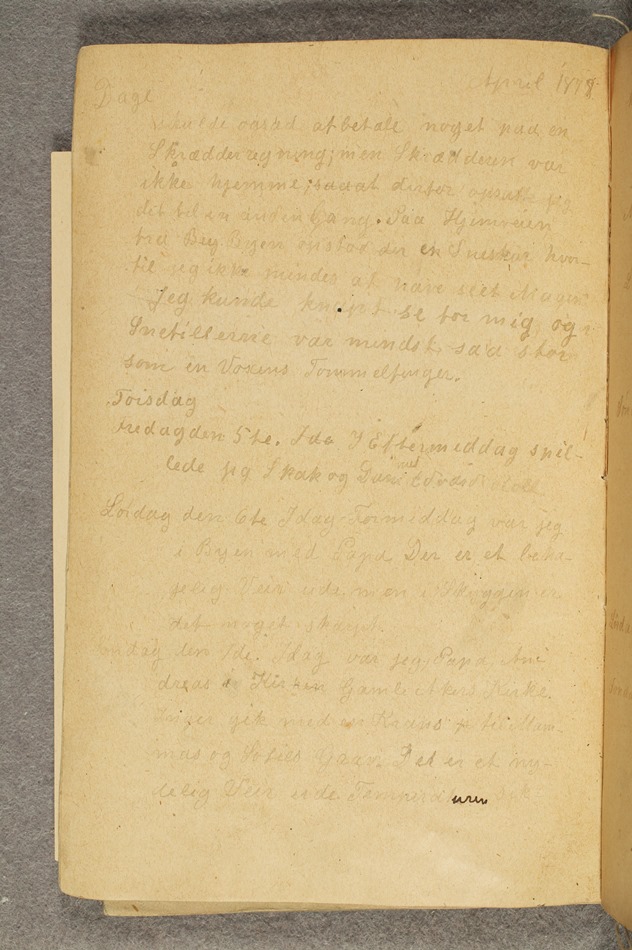 Dage
April 1878
skulde ogsaa afbetale noget paa en
Skrædderregning; men Skrædderen var
ikke hjemme, saaat derfor opsatte jeg
det til en anden Gang. Paa Hjemveien
fra Byen opstod der en Sneskur hvor-
til jeg ikke mindes at have seet Magen
Jeg kunde knapt se for mig, og
Snefillerne var mindst saa store
som en Voxens Tommelfinger.
Torsdag
Fredag den 5te. Ida I Eftermiddag spil-
lede jeg Skak og Dam med Edvard
Lørdag den 6te Idag Formiddag var jeg
i Byen med Papa Der er et beha-
gelig Veir ude men i Skyggen er
det noget skarpt.
Søndag den 7de. Idag var jeg, Papa, An-
dreas i Kirken Gamle Akers Kirke.
Inger gik med en Krans til Mam-
mas og Sofies Grav. Det er et ny-
delig Veir ude Temperaturen